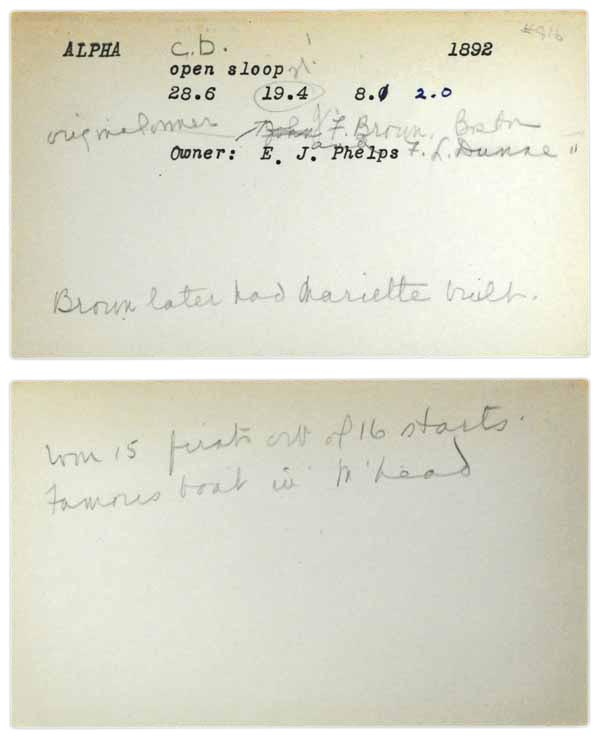 #816
ALPHA c.b. 1892
open sloop
28.6 19.4 8.0 2.0
original owner John F. Brown, Boston
Owner: E. J. Phelps and F. L. Dunne "
Brown later had Mariette built.
Won 15 firsts out of 16 starts.
Famous boat in M'head